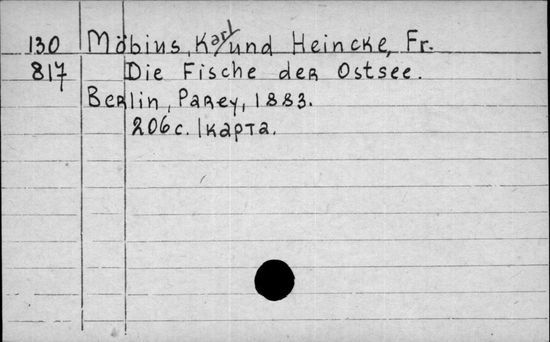 130 Möbius, Karl und Heincke, Fr.
817 Die Fische der Ostsee.
Berlin, Parey, 1883.
206 с. 1 карта.